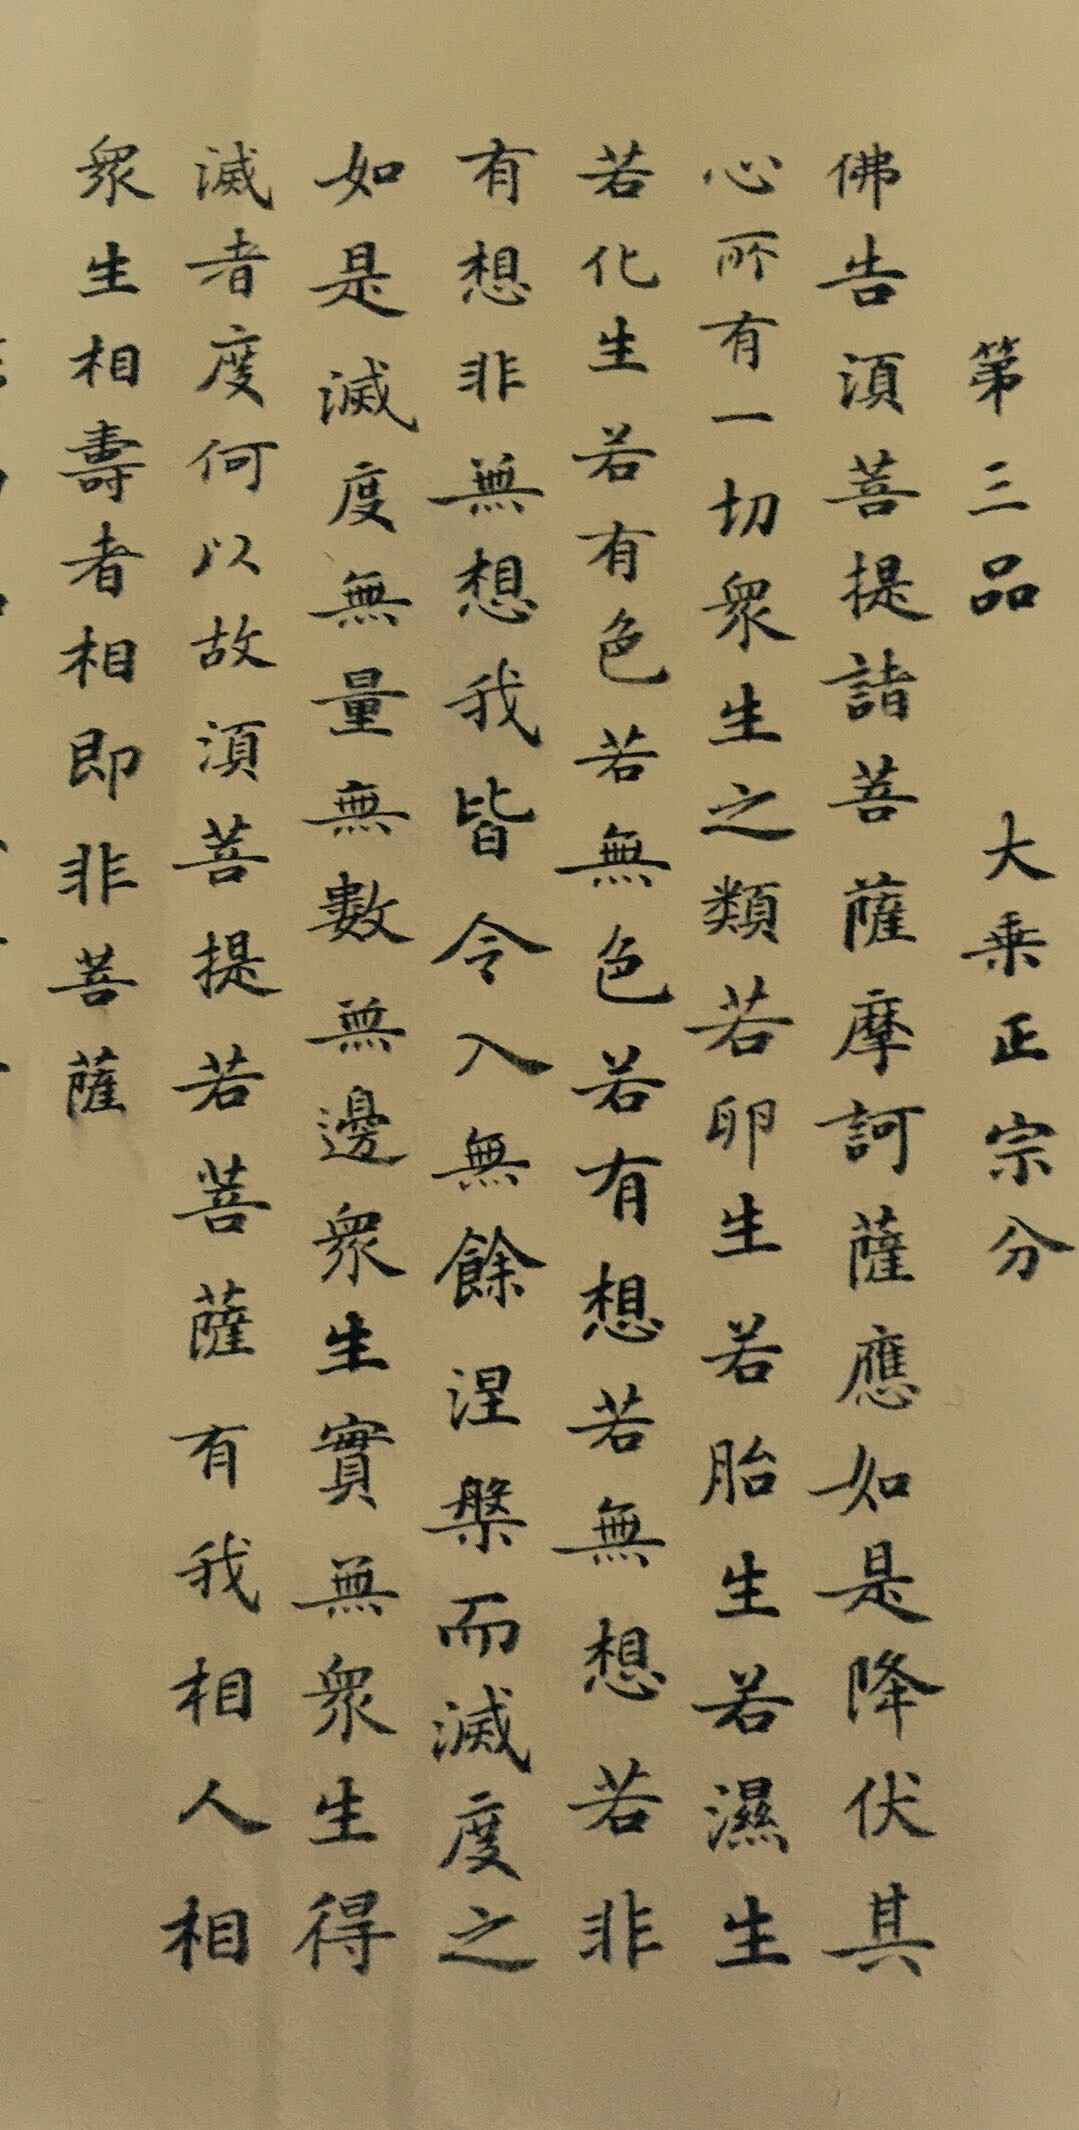 第三品 大乗正宗分
佛告須菩提諸菩薩摩訶薩應如是降伏其
心所有一切眾生之類若卵生若胎生若濕生
若化生若有色若無色若有想若無想若非
有想非無想我皆令入無餘涅槃而滅度之
如是滅度無量無數無邊眾生實無眾生得
滅者度何以故須菩提若菩薩有我相人相
眾生相壽者相即非菩薩